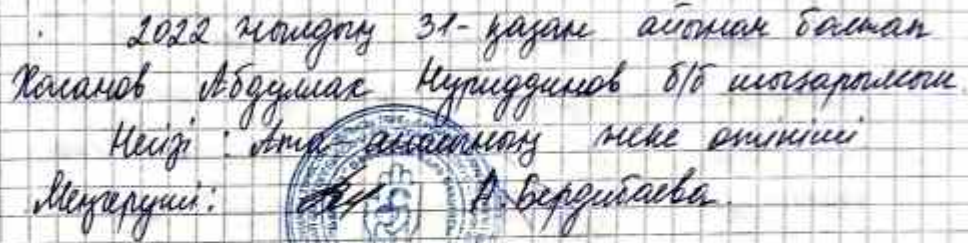 2022 жылдың 31-қазан айынан бастап
Хасанов Абдумак Нуриддинов б/б шығарылсын
Негізі: Ата-анасының жеке өтініші
Меңгеруші: А. Бердибаева.